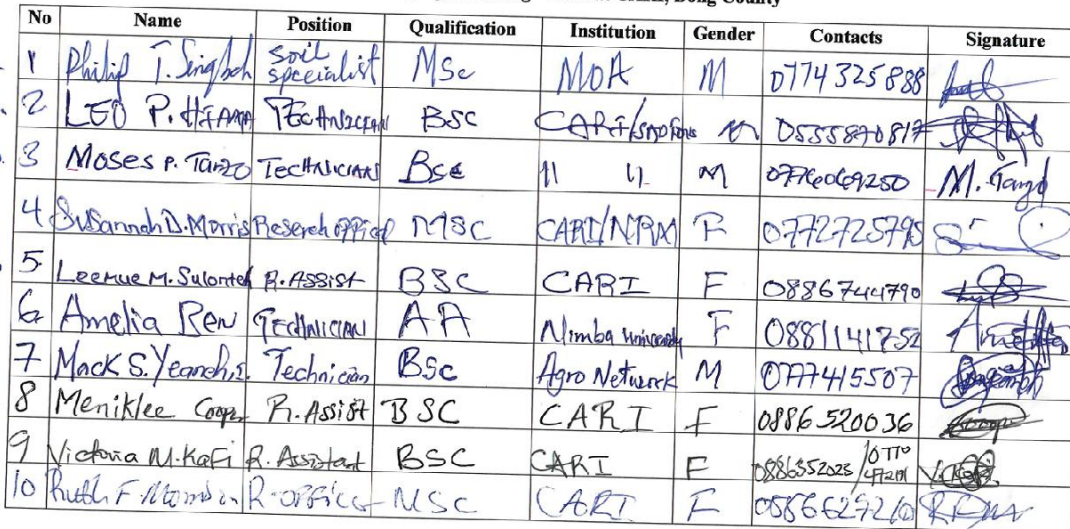 Bong County
No Name Position Qualification Institution Gender Contacts Signature
1 Philip T. Singboh soil specialist MSc MOA M 0774325888
2 LEO P. TECHNICIAN BSC CARI/ M 0555870817
3 Moses P. Tarzo TECHNICIAN Bsc 11 11 M M. Tarzo
4 Susannah D. Morris Reserch officer MSC CARI/NRM F 0772725795
5 Leemue M. R. Assist BSC CARI F 0886744790
6 Amelia Ren TECHNICIAN AA Nimba University F 0881141752
7 Mack S. Technician BSc Agro Network M 077415507
8 Meniklee Cooper R. Assist BSC CARI F 0886520036
9 Victoria M. Kafi R. Assistant BSC CARI F 0886552025/
10 Ruth F R-officer MSC CARI F